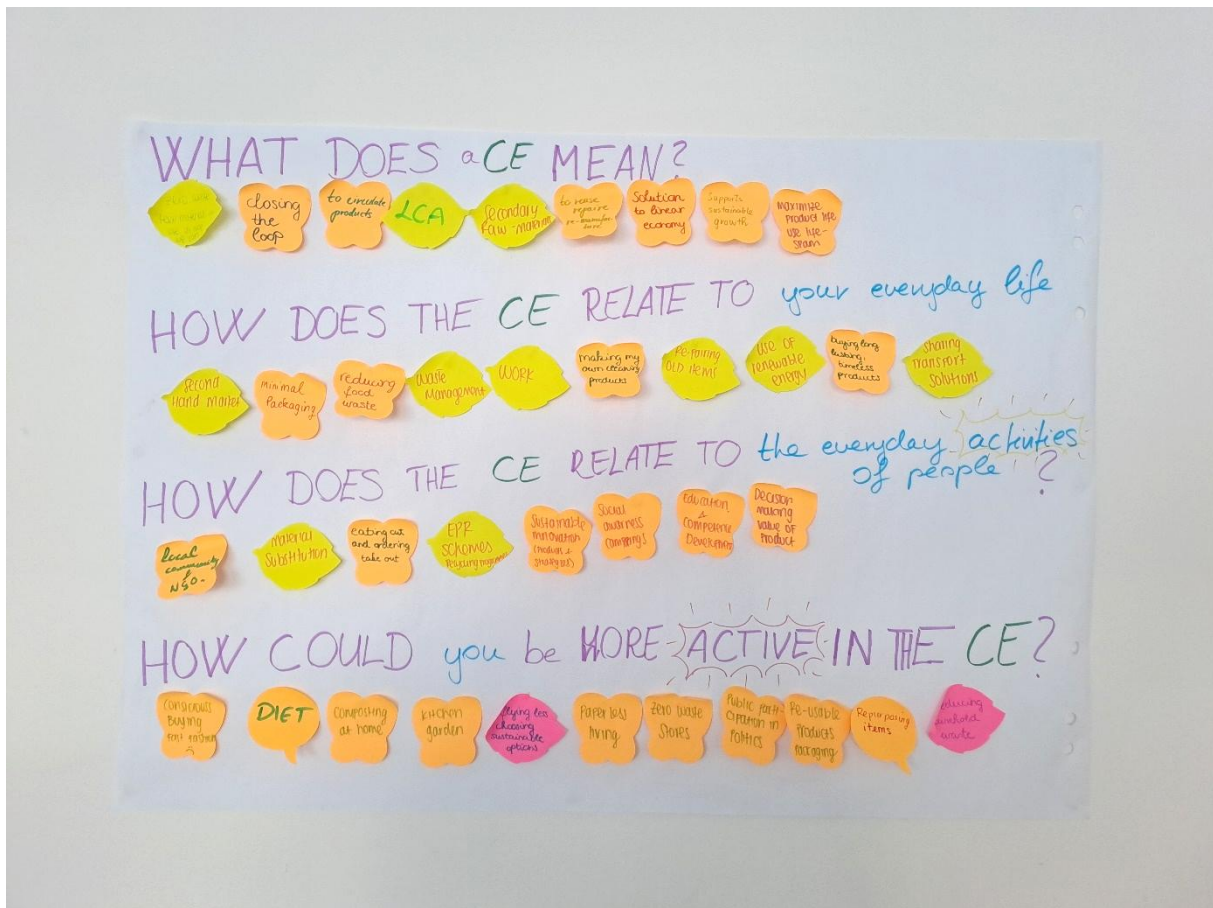 WHAT DOES a CE MEAN?
closing
the
loop
to circulate
products
LCA
Secondary
raw-materials
to reuse
repaire
Solution
to linear
economy
Supports
sustainable
growth
Maximise
Product life
use life-
span
HOW DOES THE CE RELATE TO your everyday life
Second
Hand Market
minimal
Packaging
reducing
food
waste
Waste
Management
WORK
making my
own cleaning
products
Re-pairing
OLD items
USE OF
renewable
energy
buying long
lasting,
timeless
products
sharing
transport
solutions
HOW DOES THE CE RELATE TO the everyday activities
of people ?
local
community
NGO.
Material
Substitution
eating out
and ordering
take out
EPR
schemes
Sustainable
innovation
Social
awareness
campaings
Education
&
Competence
Development
Decision
making
value of
Product
HOW COULD you be MORE ACTIVE IN THE CE?
Conscious
Buying
DIET
composting
at home
kitchen
garden
flying less
choosing
sustainable
options
Paper less
living
Zero waste
Stores
Public parti-
cipation in
Politics
Re-usable
Products
packaging
Repurposing
items
reducing
household
waste